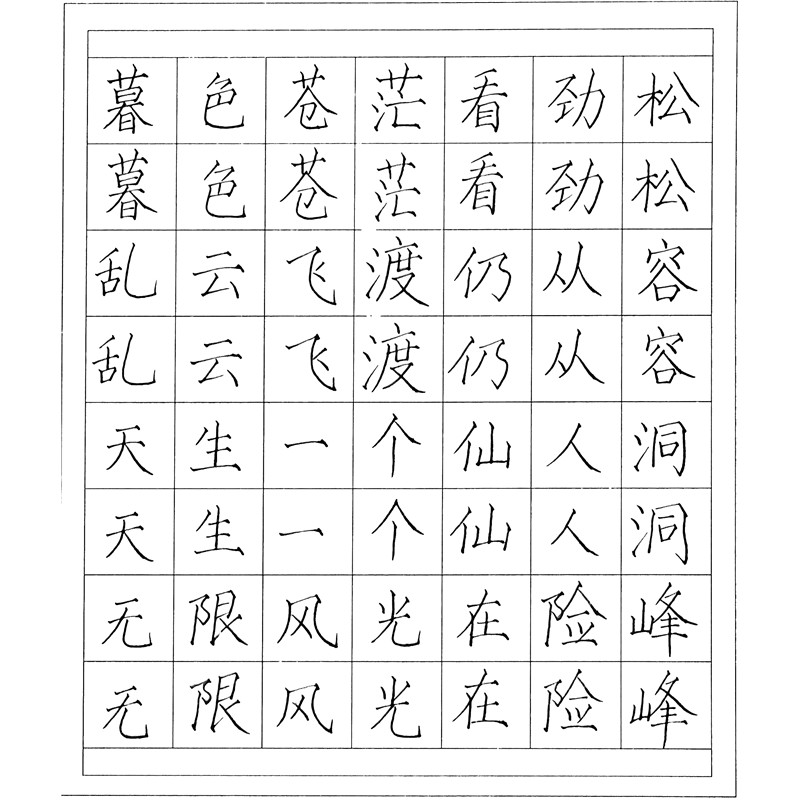 暮色苍茫看劲松
暮色苍茫看劲松
乱云飞渡仍从容
乱云飞渡仍从容
天生一个仙人洞
天生一个仙人洞
无限风光在险峰
无限风光在险峰